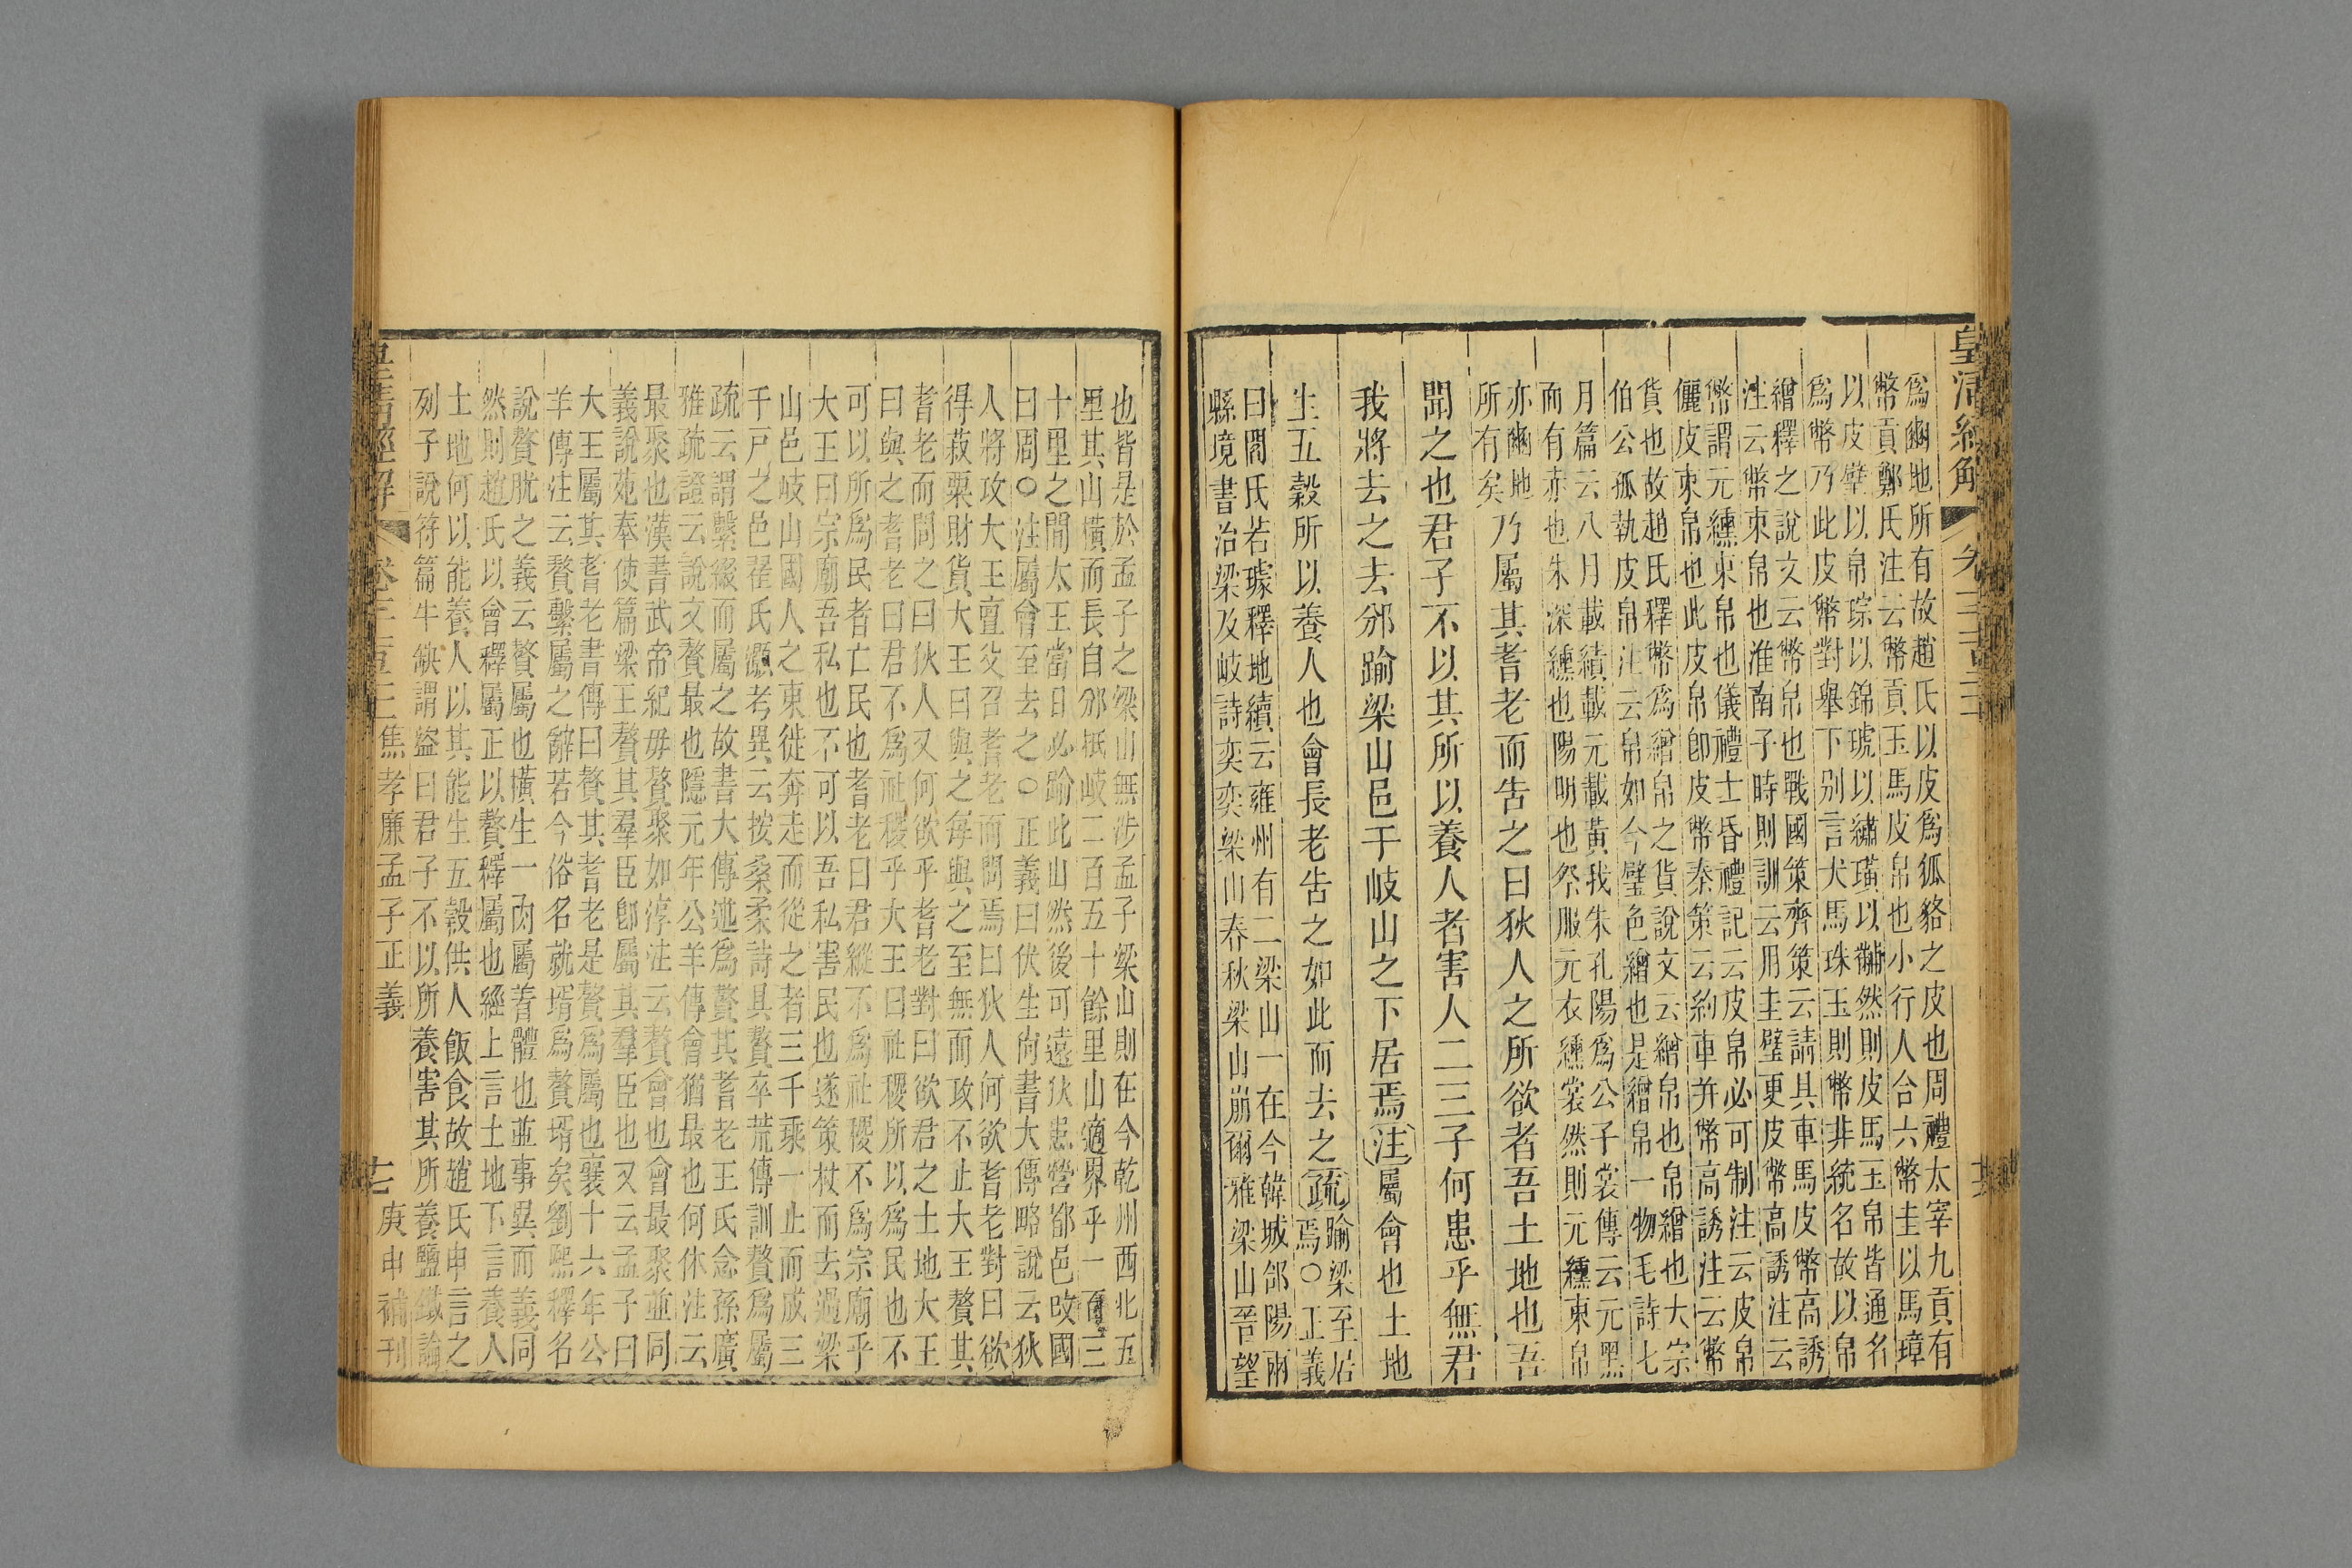 皇清經解
爲豳地所有故趙氏以皮爲狐貉之皮也周禮太宰九貢有
幣貢鄭氏注云幣貢玉馬皮帛也小行人合六幣圭以馬璋
以皮璧以帛琮以錦琥以繡璜以黼然則皮馬玉帛皆通名
爲幣乃此皮幣對舉下别言犬馬珠玉則幣非統名故以帛
繒釋之說文云幣帛也戰國策齊策云請具車馬皮幣高誘
注云幣束帛也淮南子時則訓云用圭璧更皮幣高誘注云
幣謂元纁束帛也儀禮士昏禮記云皮帛必可制注云皮帛
儷皮束帛也此皮帛卽皮幣秦策云約車并幣高誘注云幣
貨也故趙氏釋幣爲繒帛之貨說文云繒帛也帛繒也大宗
伯公孤執皮帛注云帛如今璧色繒也是繒帛一物毛詩七
月篇云八月載績載元載黃我朱孔陽爲公子裳傳云元黑
而有赤也朱深纁也陽明也祭服元衣纁裳然則元纁束帛
亦豳地
所有矣乃屬其耆老而告之曰狄人之所欲者吾土地也吾
聞之也君子不以其所以養人者害人二三子何患乎無君
我將去之去邠踰梁山邑于岐山之下居焉注屬會也土地
生五穀所以養人也會長老告之如此而去之疏踰梁至居
焉○正義
曰閻氏若璩釋地續云雍州有二梁山一在今韓城郃陽兩
縣境書治梁及岐詩奕奕梁山春秋梁山崩爾雅梁山晉望
也皆是於孟子之梁山無涉孟子梁山則在今乾州西北五
里其山橫而長自邠抵岐二百五十餘里山適界乎一百三
十里之間太王當日必踰此山然後可遠狄患營都邑改國
曰周○注屬會至去之○正義曰伏生尚書大傳略說云狄
人將攻大王亶父召耆老而問焉曰狄人何欲耆老對曰欲
得菽粟財貨大王曰與之每與之至無而攻不止大王贅其
耆老而問之曰狄人又何欲乎耆老對曰欲君之土地大王
曰與之耆老曰君不爲社稷乎大王曰社稷所以爲民也不
可以所爲民者亡民也耆老曰君縱不爲社稷不爲宗廟乎
大王曰宗廟吾私也不可以吾私害民也遂策杖而去過梁
山邑岐山國人之東徙奔走而從之者三千乘一止而成三
千戸之邑翟氏灝考異云按桑柔詩具贅卒荒傳訓贅爲屬
疏云謂繫綴而屬之故書大傳述爲贅其耆老王氏念孫廣
雅疏證云說文贅最也隱元年公羊傳會猶最也何休注云
最聚也漢書武帝紀毋贅聚如淳注云贅會也會最聚並同
義說苑奉使篇梁王贅其羣臣卽屬其羣臣也又云孟子曰
大王屬其耆老書傳曰贅其耆老是贅爲屬也襄十六年公
羊傳注云贅繫屬之辭若今俗名就壻爲贅壻矣劉熙釋名
說贅肬之義云贅屬也橫生一肉屬着體也並事異而義同
然則趙氏以會釋屬正以贅釋屬也經上言土地下言養人
土地何以能養人以其能生五穀供人飯食故趙氏申言之
列子說符篇牛缺謂盜曰君子不以所養害其所養鹽鐵論
皇清經解
焦孝廉孟子正義
庚申補刊